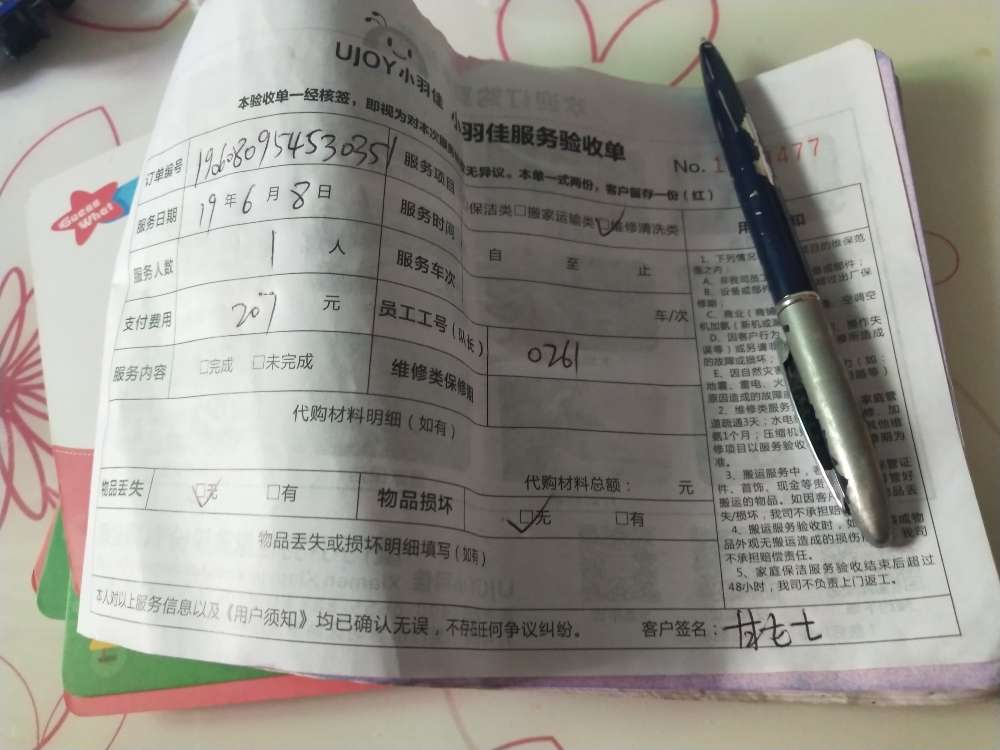 UJOY小羽佳
小羽佳服务验收单
本验收单一经核签，即视为对本次服务 无异议。本单一式两份，客户留存一份（红）
No. 1 477
订单编号 190608095453035 服务项目 保洁类 □搬家运输类 维修清洗类
服务日期 19年6月8日 服务时间 自 至 止
服务人数 1 人 服务车次 车/次
支付费用 207 元 员工工号（队长） 0261
服务内容 □完成 □未完成 维修类保修期
代购材料明细（如有）
代购材料总额： 元
物品丢失 □无 □有 物品损坏 □无 □有
物品丢失或损坏明细填写（如有）
本人对以上服务信息以及《用户须知》均已确认无误，不存在任何争议纠纷。 客户签名：
用 知
1、下列情况 项目的维保范
围之内：
A、非我司员工
B、设备或部件 超过出厂保
修期；
C、商业（商铺 空调空
机加氨（新机或
D、因客户行为 操作失
误等）或另请
的故障或损坏；
E、因自然灾害 力（如：
地震、雷电、火
原因造成的故障
2、维修类服务 家庭管
道疏通3天；水电 修、加
氨1个月；压缩机 其他维
修项目以服务验收 期为
准。
3、搬运服务中，
件、首饰、现金等贵
搬运的物品。如因客户
失/损坏，我司不承担赔
4、搬运服务验收时，如 或物
品外观无搬运造成的损伤 我司
不承担赔偿责任。
5、家庭保洁服务验收结束后超过
48小时，我司不负责上门返工。
Guess
What